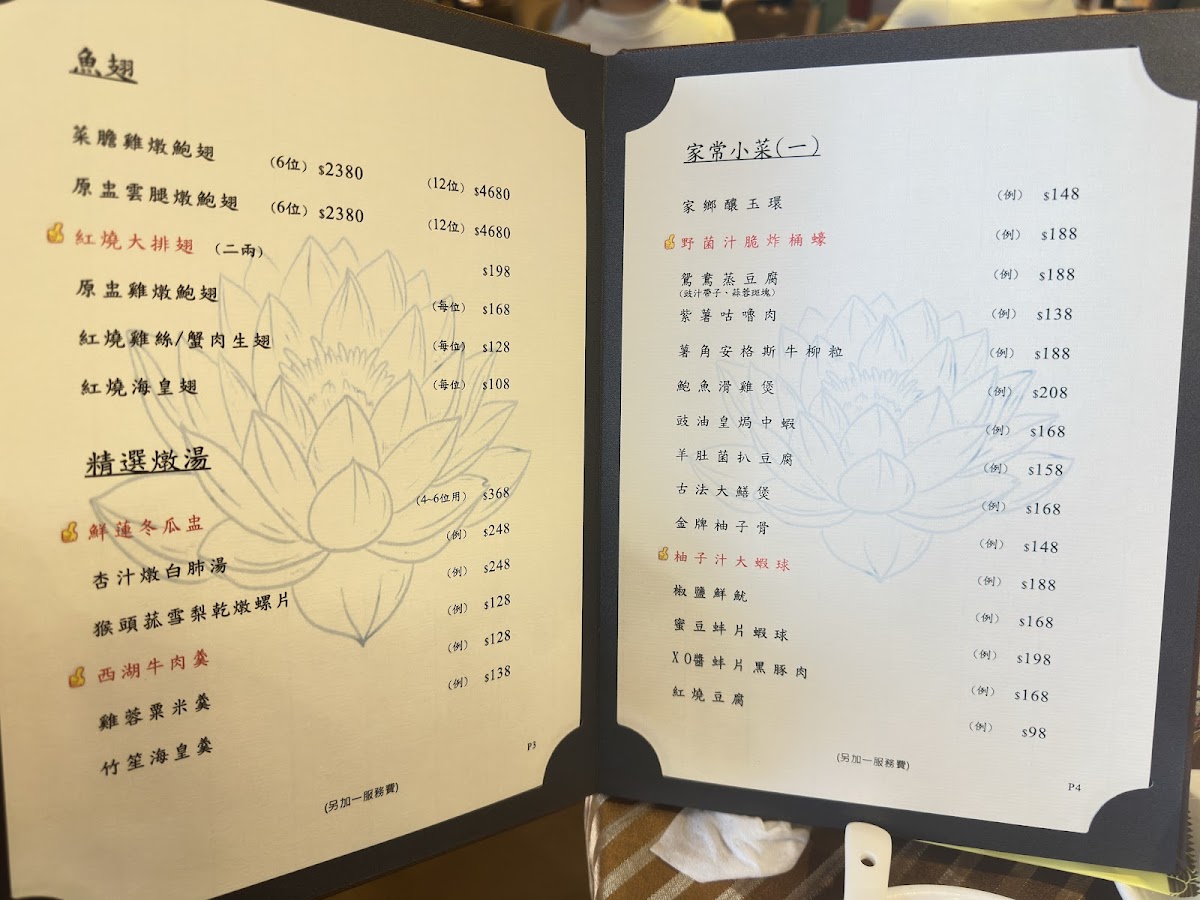 魚翅
菜膽雞燉鮑翅 (6位) $2380 (12位) $4680
原盅雲腿燉鮑翅 (6位) $2380 (12位) $4680
紅燒大排翅 (二兩) $198
原盅雞燉鮑翅 (每位) $168
紅燒雞絲/蟹肉生翅 (每位) $128
紅燒海皇翅 (每位) $108
精選燉湯
鮮蓮冬瓜盅 (4~6位用) $368
杏汁燉白肺湯 (例) $248
猴頭菰雪梨乾燉螺片 (例) $248
西湖牛肉羹 (例) $128
雞蓉粟米羹 (例) $128
竹笙海皇羹 (例) $138
P3
(另加一服務費)
家常小菜(一)
家鄉釀玉環 (例) $148
野菌汁脆炸桶蠔 (例) $188
鴛鴦蒸豆腐 (例) $188
(豉汁帶子、蒜蓉斑塊)
紫薯咕嚕肉 (例) $138
薯角安格斯牛柳粒 (例) $188
鮑魚滑雞煲 (例) $208
豉油皇焗中蝦 (例) $168
羊肚菌扒豆腐 (例) $158
古法大鱔煲 (例) $168
金牌柚子骨 (例) $148
柚子汁大蝦球 (例) $188
椒鹽鮮魷 (例) $168
蜜豆蚌片蝦球 (例) $198
XO醬蚌片黑豚肉 (例) $168
紅燒豆腐 (例) $98
(另加一服務費)
P4